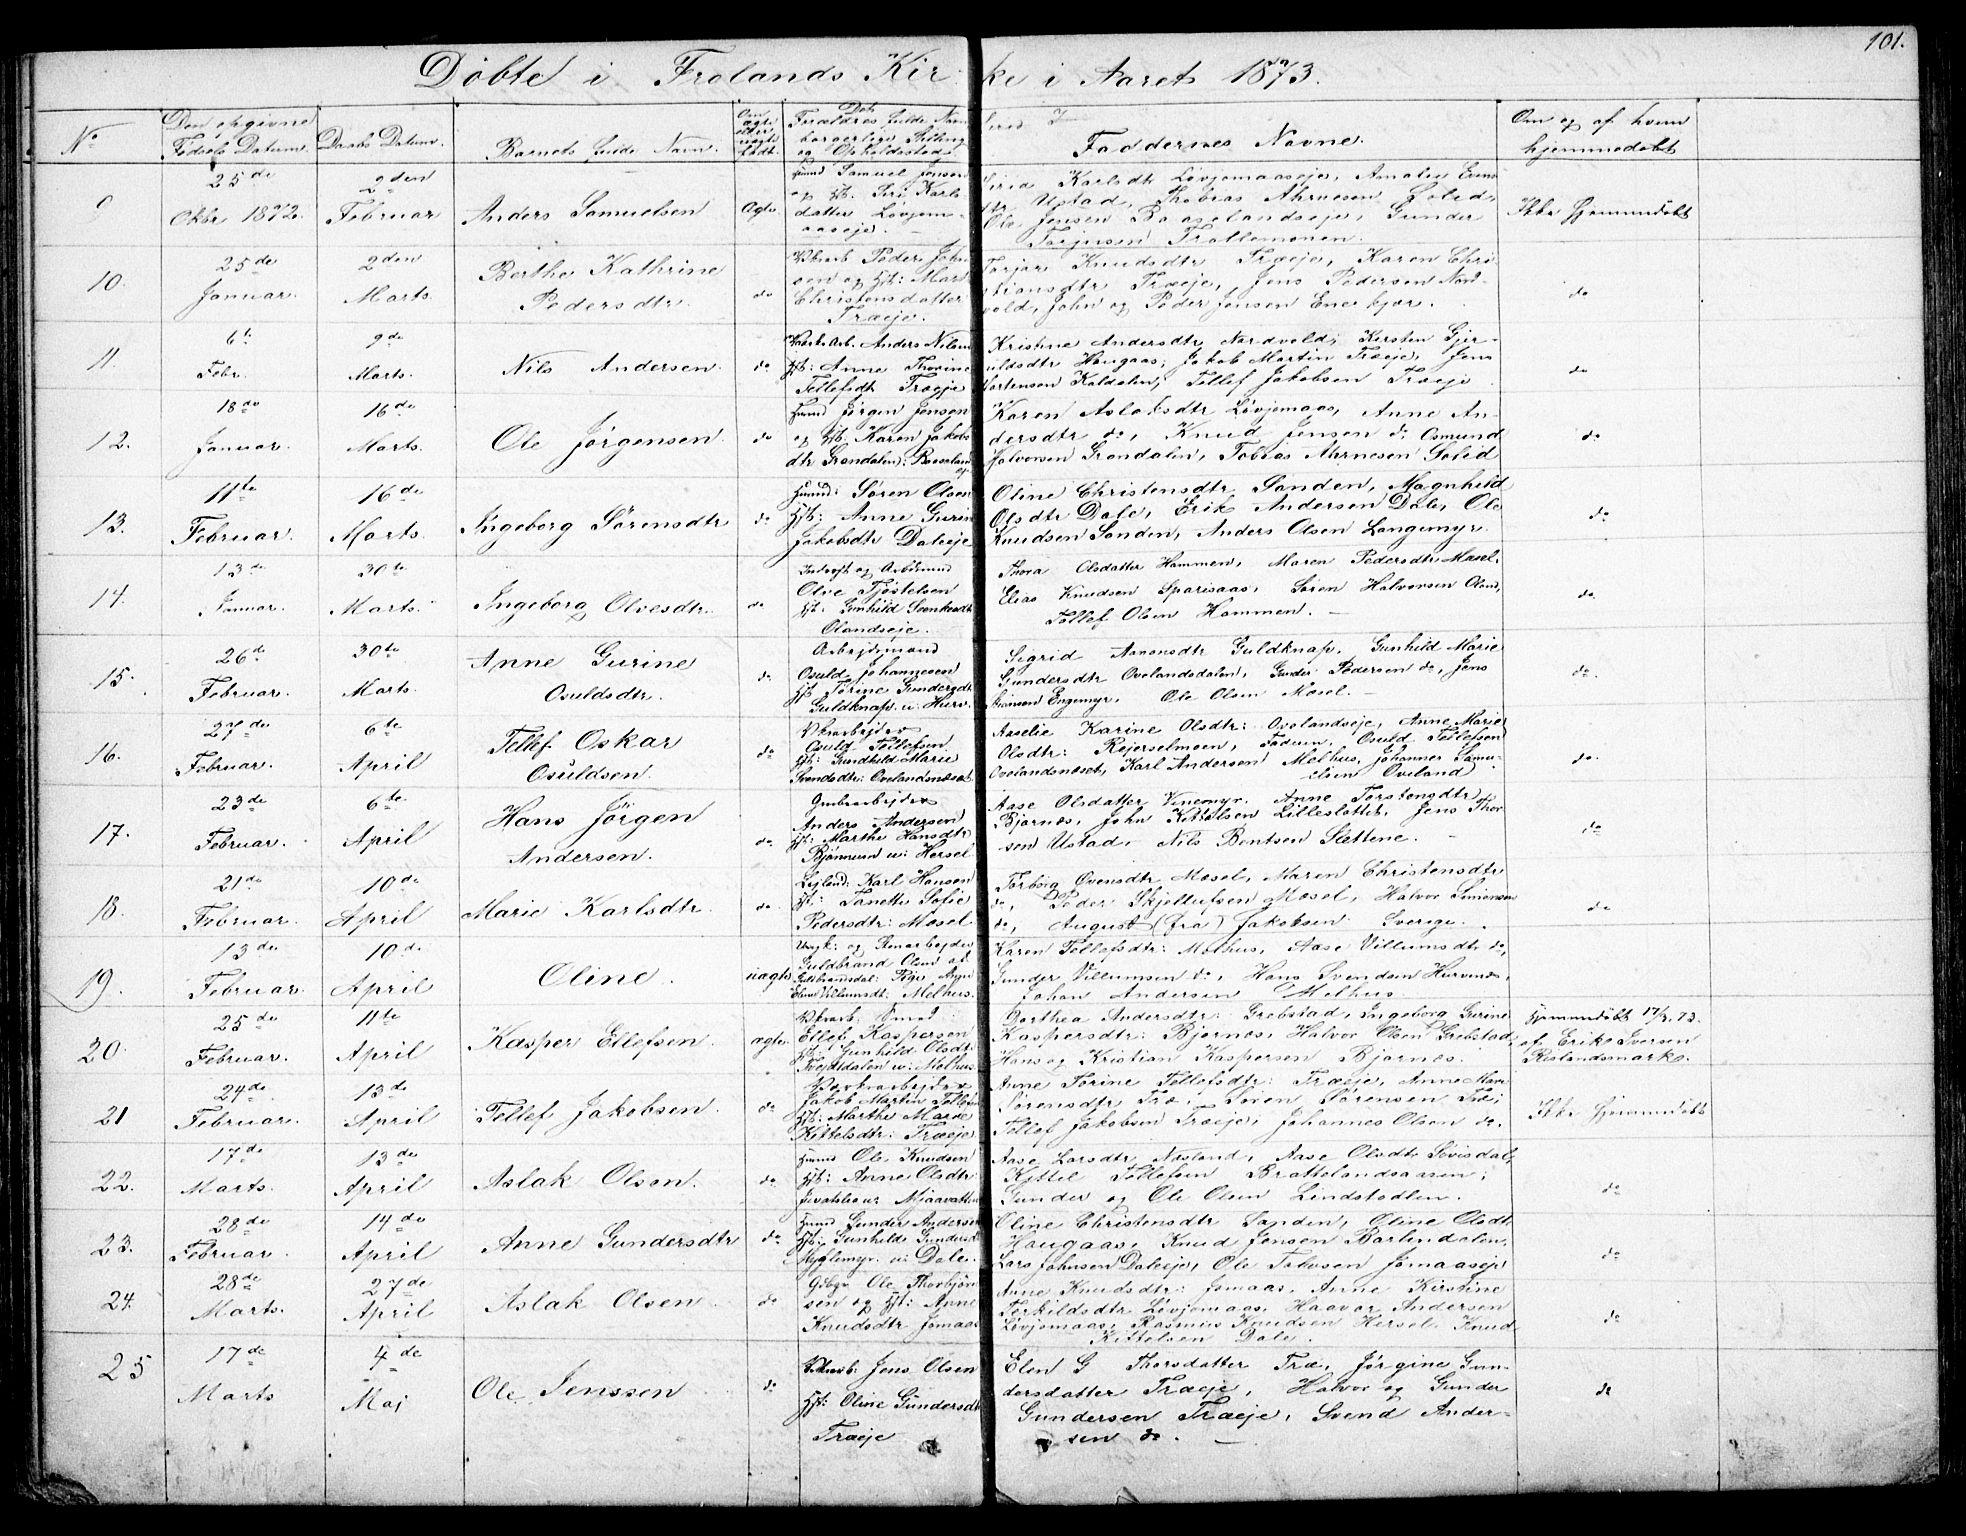 101.
Døbte i Frolands Kirke i Aaret 1873.
No
Den opgivne Fødsels Datum.
Daabs Datum.
Barnets fulde Navn.
Om ægte eller uægte født.
Forældres fulde Navn borgerlig Stilling og Opholdssted
Faddernes Navne.
Om og af hvem hjemmedøbt
9
25de Oktbr 1872.
2den Februar
Anders Samuelsen
Ægte
Huusmd Samuel Jensen
og Hst. Siri Karls
datter Løvjom-
aaseje.
Siria Karlsdtr Løvjomaaseje, Amalie Evens
dtr Ustad, Thobias Ahrnesen Solid,
Ole Jensen Baaselandseje, Gunder
Terjesen Trollemonen.
Ikke hjemmedøbt
10.
25de Januar.
2den Marts.
Berthe Kathrine
Pedersdtr.
do
Vkarb Peder Jen
sen og Hst: Mart
Christensdatter
Træeje.
Tarjer Knudsdtr Træeje, Karen Chri-
stiansdtr Træeje, Jens Pedersen Nord-
vold, John og Peder Jensen Enekjær.
do
11.
6te Febr.
9de Marts.
Nils Andersen.
do
Værks Arb. Anders Nilsen
Hst: Anne Thorine
Tellefsdt Træeje
Kristine Andersdtr Nordvold, Kirsten Gjer-
uldsdtr Haugaas, Jakob Martin Træeje, Jens
Mortensen Kaldalen, Tellef Jakobsen Træeje
do
12.
18de Januar.
16de Marts.
Ole Jørgensen
do
Huusmd Jørgen Jensen
og Hst. Karen Jakobs
dtr Grøndalen: Baaseland
Karen Aslaksdtr Løvjomaas, Anne An-
dersdtr do, Knud Jensen do, Osmund
Halvorsen Grøndalen, Tobias Ahrnesen Solid
do
13.
11te Februar.
16de Marts.
Ingeborg Sørensdtr
do
Huusmd: Søren Olsen
Hst: Anne Gurine
Jakobsdtr Daleeje
Oline Christensdtr Sanden, Magnhild
Olsdtr Dale, Erik Andersen Dale, Ole
Knudsen Sanden, Anders Olsen Langemyr.
do
14.
13de Januar.
30te Marts.
Ingeborg Olvesdtr.
do
Inderst og Arbdsmd
Olve Tjøstelsen
Hst: Gunhild Svenkesdt
Olandseje.
Thora Olsdatter Hammen, Maren Pedersdtr Mosel.
Elias Knudsen Sparisaas, Søren Halvorsen Oland,
Tellef Olsen Hammen.
do.
15.
26de Februar.
30te Marts.
Anne Gurine
Osuldsdtr.
do
Arbejdsmand
Osuld Johannesen
Hst Torine Gundersdt
Guldknap. u: Hurv.
Sigrid Aanonsdtr Guldknap, Gunhild Marie
Gundersdtr Ovelandsdalen, Gunder Pedersen do, Jens
Hansen Engemyr, Ole Olsen Mosel.
do.
16.
27de Februar.
6te April
Tellef Oskar
Osuldsen.
do
Vkrarbejder
Osuld Tellefsen
Hst: Gundhild Marie
Svendsdtr: Ovelandsnæset
Aaselie Karine Olsdtr: Ovelandseje, Anne Marie
Olsdtr: Rejerselmoen, Osuld Tellefsen
Ovelandsnæset, Karl Andersen Melhus, Johannes Samu-
elsen Oveland
do.
17.
23de Februar.
6te April
Hans Jörgen
Andersen.
do
Grubearbejder
Anders Andersen
Hst: Marthe Hansdtr
Bjønnem u: Hersel
Aase Olsdatter Vinemyr. Anne Torstensdtr
Bjørnes, John Kittelsen Lilleslottet, Jens Thor
sen Ustad. Nils Bentsen Slettene.
do
18.
21de Februar.
10de April
Marie Karlsdtr.
do.
Lejlend: Karl Hansen
Hst: Tanette Sofie
Pedersdtr: Mosel
Torborg Ovensdtr Mosel, Maren Christensdtr
do, Peder Skjellufsen Mosel, Halvor Simonsen
do, August (fra) Jakobsen Sverige.
do
19.
13de Februar.
10de April
Oline.
uægte
Guldbrand Olsen af
Guldbrandsdal: Pige Anne
Elene Villumsdt. Melhus.
Karen Tellefsdtr: Melhus, Aase Villumsdtr do,
Gunder Villumsen do, Hans Svendsen Hurvenes,
Johan Andersen Melhus.
20.
25de Februar.
11te April
Kasper Ellefsen.
ægte.
Vkrarb: Smed
Ellef Kaspersen
Hst: Gunhild Olsdt:
u: Melhus.
Dorthea Andersdtr: Grebstad, Ingeborg Gurine
Kaspersdtr: Bjørnes, Halvor Olsen Grebstad,
Hans og Kristian Kaspersen Bjørnes.
Hjemmedøbt 17/3. 73.
af Erik Iversen
Rislandsmark.
21
24de Februar.
13de April
Tellef Jakobsen.
do
Værkrarbejder
Jakob Martin Tellefsen
Hst: Marthe Marie
Kittelsdtr: Træeje
Anne Torine Tellefsdtr: Træeje, Anne Mari
Sørensdtr Træ, Søren Sørensen Træ,
Tellef Jakobsen Træeje, Johannes Olsen do.
Ikke hjemmedøbt
22.
17de Marts.
13de April
Aslak Olsen.
do.
Huusmd Ole Knudsen
Hst: Anne Olsdtr
Mjaavatten
Aase Larsdtr Næsland, Aase Olsdtr Sövisdal,
Kjttil Tellefsen Brattelandsaasen,
Gunder og Ole Olsen Lindstødlen.
do
23.
28de Februar.
14de April
Anne Gundersdtr
do.
Huusmd Gunder Andersen
Hst: Gunhilde Gundersdt
Myglemyr. u: Dale.
Oline Christensdtr Sanden, Oline Olsdt
Haugaas, Knud Jensen Bartendalen,
Lars Johnsen Daleeje, Ole Jomaaseje
do
24.
28de Marts.
27de April
Aslak Olsen.
do
Gdbgr Ole Thorbjørn
sen og Hst: Anne
Knudsdtr Jomaas
Anne Knudsdtr: Jomaas, Anne Kirstine
Terkildsdtr Løvjomaas, Haavor Andersen
Løvjomaas, Rasmus Knudsen Hersel. Knud
Kittelsen Dale.
do
25
17de Marts
4de Maj
Ole Jenssen
do
Vrkarb: Jens Olsen
Hst: Oline Gundersdt
Træeje
Elen G Thorsdatter Træ, Jørgine Gun-
dersdatter Træeje, Halvor og Gunder
Gundersen Træeje, Svend Ander-
sen do.
do